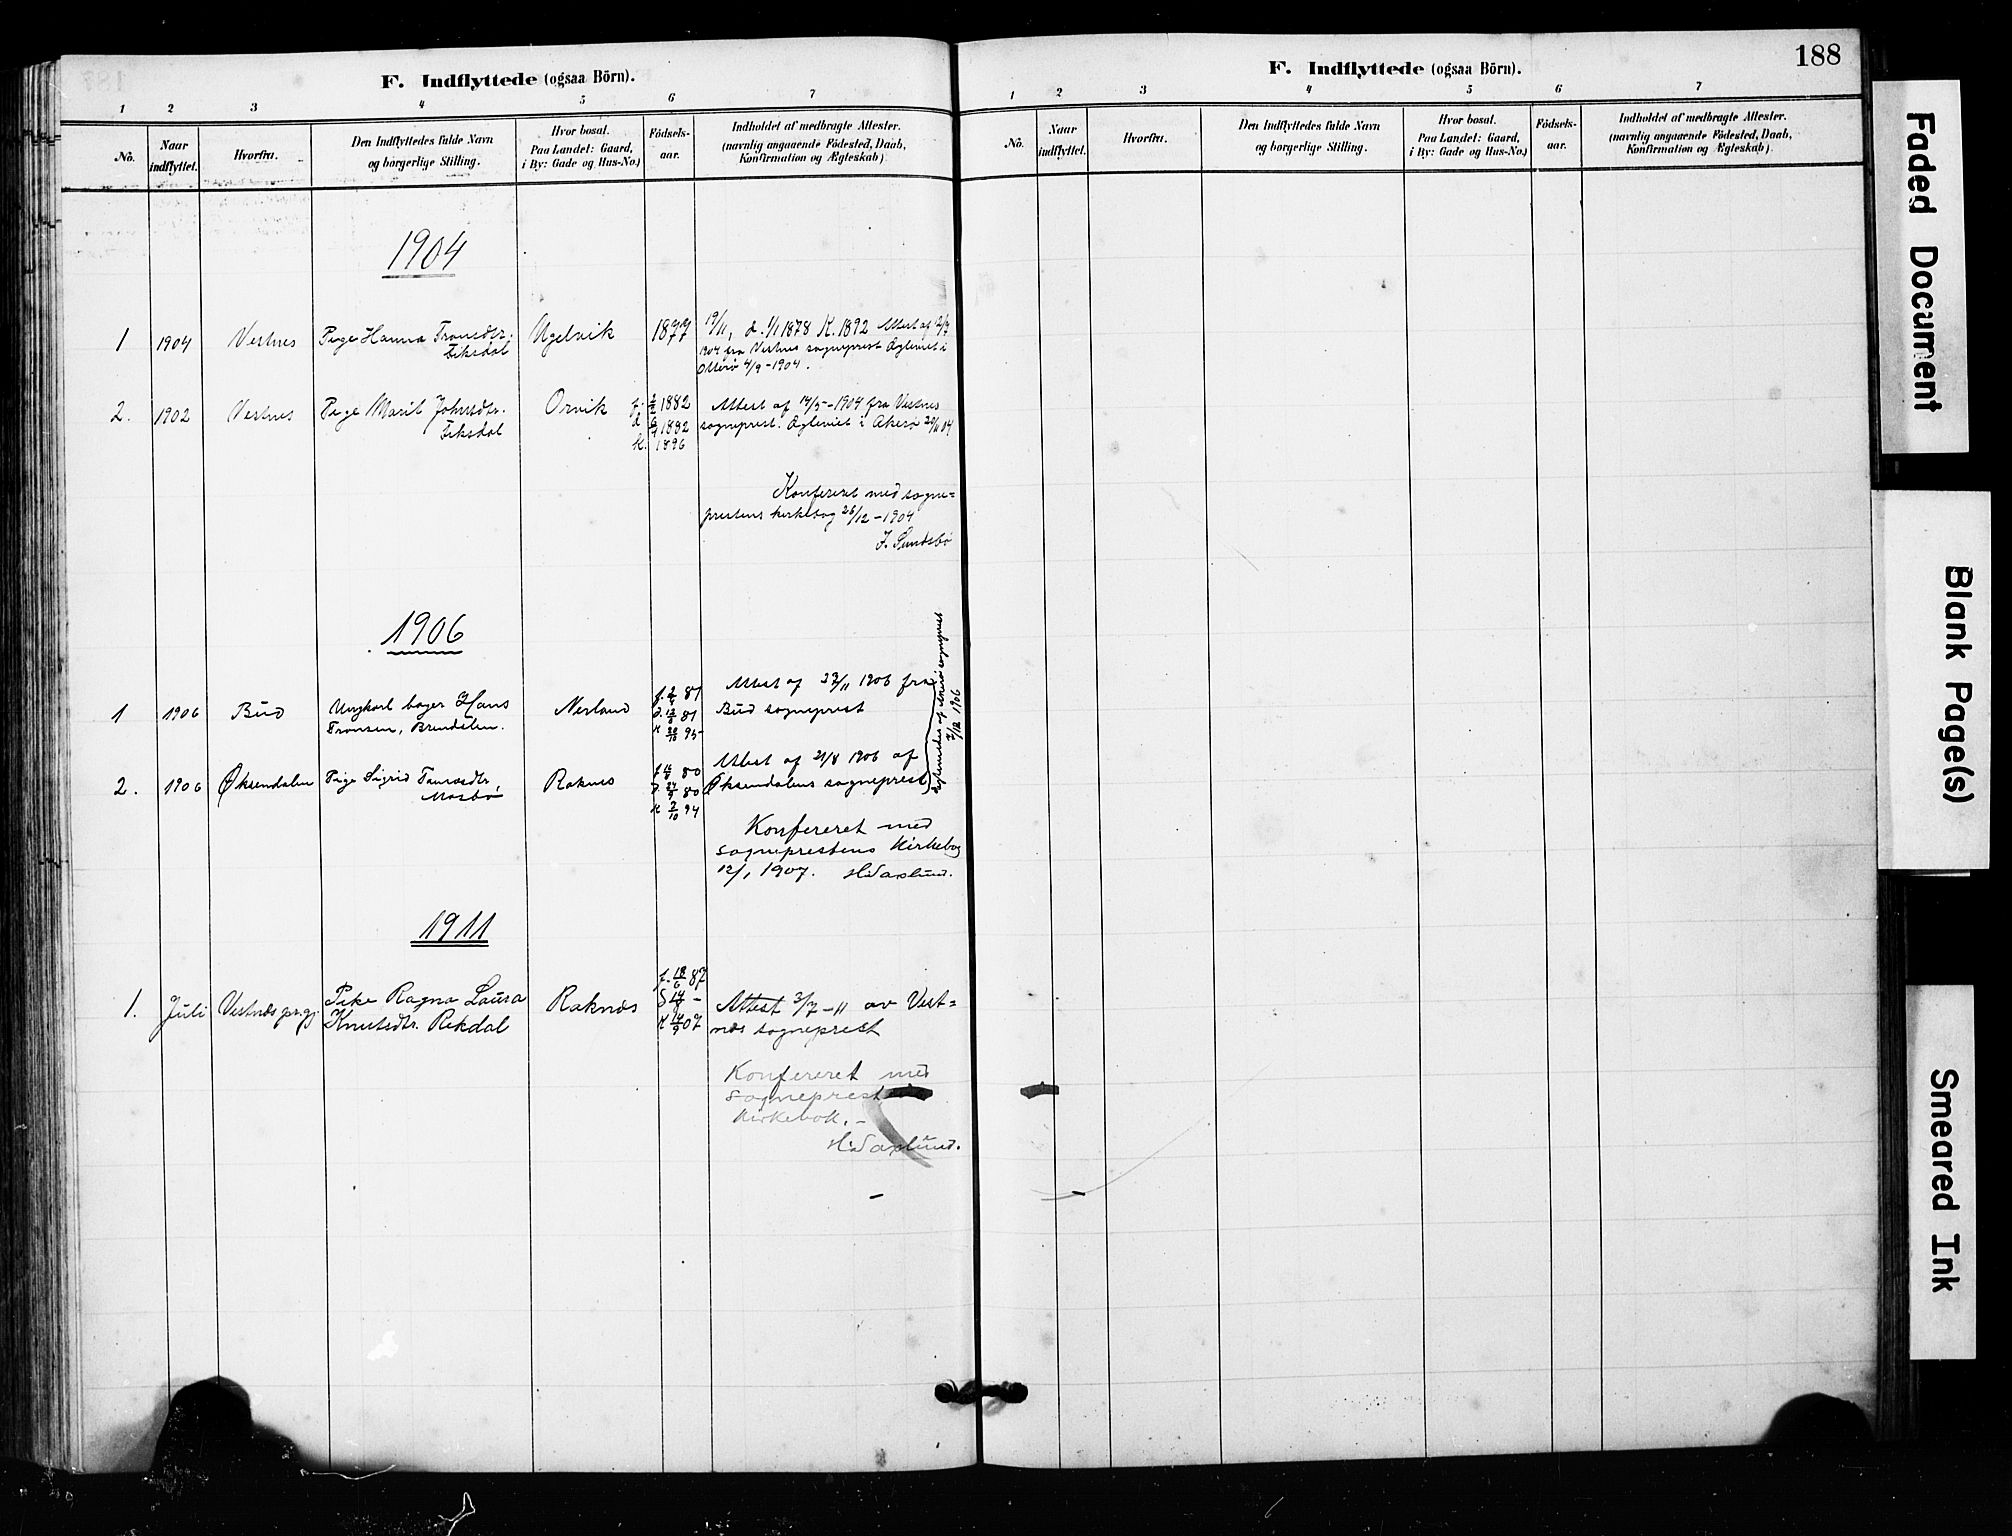 188
F. Indflyttede (ogsaa Börn).
1 2 3 4 5 6 7
No.
Naar indflyttet.
Hvorfra.
Den Indflyttedes fulde Navn
og borgerlige Stilling.
Hvor bosat.
Paa Landet: Gaard,
i By: Gade og Hus-No.)
Födsels-
aar.
Indholdet af medbragte Attester.
(navnlig angaaende Födested, Daab,
Konfirmation og Ægteskab)
1904
1 1904 Vestnes Pige Hanna
Fiksdal
Ugelvik 1877
19/11, d. 1/1 1878 K. 1892 Attest af
1904 fra Vestnes sogneprest Ægteviet i
Otterö 4/9-1904.
2. 1902 Vestnes Pige Marit Johnsdtr.
Fiksdal
Orvik
1882
1882
K. 1896
Attest af 14/5-1904 fra Vestnes
sogneprest. Ægteviet i Akerø 04
Konfereret med sogne=
prestens kirkebog 28/12-1904
J. Sundsbö
1906
1 1906 Bud Ungkarl bager Hans
Fransen,
Nerland
Attest af 1906 fra
Bud sogneprest
2. 1906 Øksendalen Pige Sigrid
Mosbö
Raknes
Attest af 21/8 1906 af
Øksendalens sogneprest
sogneprest
1906
Konfereret med
sogneprestens Kirkebog
12/1 1907.
1911
1. Juli Vestnæs pr.gj. Pike Ragna Laura
Knutsdtr. Rekdal
Raknæs
f. 18/6 87
Attest 3/7-11 av Vest=
næs sogneprest
Konfereret med
sogneprest
Kirkebok.-
F. Indflyttede (ogsaa Börn).
1 2 3 4 5 6 7
No.
Naar
indflyttet.
Hvorfra.
Den Indflyttedes fulde Navn
og borgerlige Stilling.
Hvor bosat.
Paa Landet: Gaard,
i By: Gade og Hus-No.)
Födsels-
aar.
Indholdet af medbragte Attester.
(navnlig angaaende Födested, Daab,
Konfirmation og Ægteskab)
Faded Document
Blank Page(s)
Smeared Ink